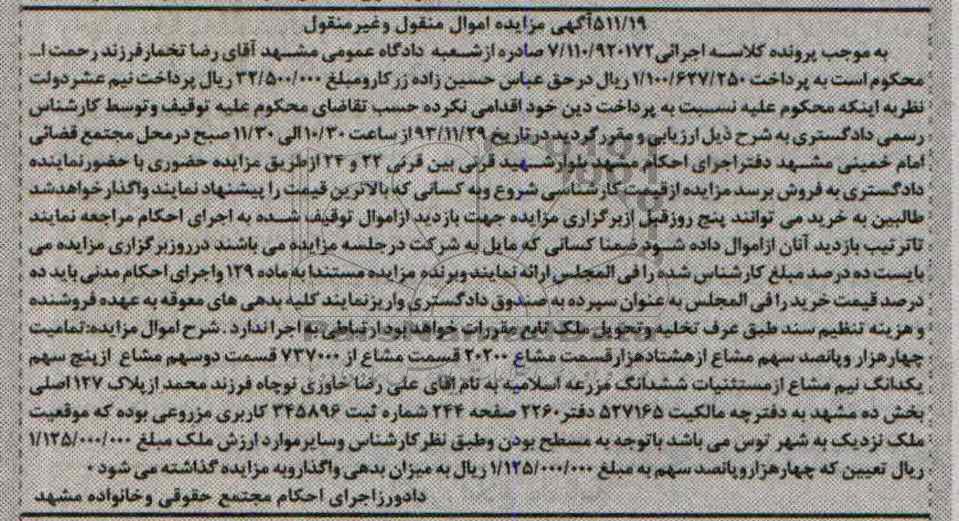 ۵۱۱/۱۹آگهی مزایده اموال منقول وغیرمنقول
به موجب پرونده کلاسه اجرائی۷/۱۱۰/۹۲۰۱۷۲ صادره ازشعبه دادگاه عمومی مشهد آقای رضا تخمارفرزند رحمت ا...
محکوم است به پرداخت ۱/۱۰۰/۶۲۷/۲۵۰ ریال درحق عباس حسین زاده زرکارومبلغ ۳۲/۵۰۰/۰۰۰ ریال پرداخت نیم عشردولت
نظربه اینکه محکوم علیه نسبت به پرداخت دین خوداقدامی نکرده حسب تقاضای محکوم علیه توقیف وتوسط کارشناس
رسمی دادگستری به شرح ذیل ارزیابی و مقررگردید درتاریخ ۹۳/۱۱/۲۹از ساعت ۱۰/۳۰الی ۱۱/۳۰ صبح درمحل مجتمع قضائی
امام خمینی مشهد دفتراجرای احکام مشهد بلوارشهید قرنی بین قرنی ۲۲ و ۲۴ ازطریق مزایده حضوری با حضورنماینده
دادگستری به فروش برسد مزایده ازقیمت کارشناسی شروع وبه کسانی که بالاترین قیمت را پیشنهاد نمایند واگذارخواهدشد
طالبین به خرید می توانند پنج روزقبل ازبرگزاری مزایده جهت بازدید ازاموال توقیف شده به اجرای احکام مراجعه نمایند
تاترتیب بازدید آنان ازاموال داده شود ضمنا کسانی که مایل به شرکت درجلسه مزایده می باشند درروزبرگزاری مزایده می
بایست ده درصد مبلغ کارشناس شده را فی المجلس ارائه نمایند وبرنده مزایده مستندا به ماده ۱۲۹ واجرای احکام مدنی باید ده
درصد قیمت خرید را فی المجلس به عنوان سپرده به صندوق دادگستری واریزنمایند کلیه بدهی های معوقه به عهده فروشنده
و هزینه تنظیم سند طبق عرف تخلیه وتحویل ملک تابع مقررات خواهد بودارتباطی به اجرا ندارد . شرح اموال مزایده:تمامیت
چهارهزار وپانصد سهم مشاع ازهشتادهزارقسمت مشاع ۲۰۲۰۰ قسمت مشاع از ۷۳۷۰۰۰ قسمت دوسهم مشاع ازپنج سهم
یکدانگ نیم مشاع ازمستثنیات ششدانگ مزرعه اسلامیه به نام آقای علی رضا خاوری نوچاه فرزند محمد ازپلاک ۱۴۷اصلی
بخش ده مشهد به دفترچه مالکیت ۵۲۷۱۶۵ دفتر۲۲۶۰ صفحه ۲۴۴ شماره ثبت ۳۴۵۸۹۶ کاربری مزروعی بوده که موقعیت
ملک نزدیک به شهر توس می باشد باتوجه به مسطح بودن وطبق نظرکارشناس وسایرموارد ارزش ملک مبلغ ۱/۱۲۵/۰۰۰/۰۰۰
ریال تعیین که چهارهزاروپانصد سهم به مبلغ ۱/۱۲۵/۰۰۰/۰۰۰ ریال به میزان بدهی واگذاروبه مزایده گذاشته می شود .
دادورزاجرای احکام مجتمع حقوقی وخانواده مشهد